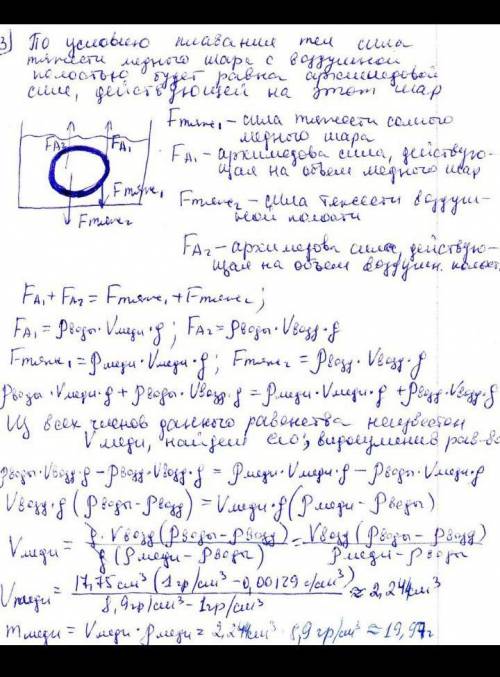 3) По условию плавания тел сила
тяжести медного шара с воздушной
полостью будет равна архимедовой
силе, действующей на этот шар
Fтяж₁ – сила тяжести самого
медного шара
FA₂ FA₁
FA₁ – архимедова сила, действую-
щая на объем медного шар
Fтяж₁
Fтяж₂
Fтяж₂ – сила тяжести воздуш-
ной полости
FA₂ – архимедова сила, действую-
щая на объем воздушн. полост
FA₁ + FA₂ = Fтяж₁ + Fтяж₂;
FA₁ = ρводы · Vмеди · g; FA₂ = ρводы · Vвозд · g
Fтяж₁ = ρмеди · Vмеди · g; Fтяж₂ = ρвозд · Vвозд · g
ρводы · Vмеди · g + ρводы · Vвозд · g = ρмеди · Vмеди · g + ρвозд · Vвозд · g
Из всех членов данного равенства неизвестон
Vмеди, найдем его, видоизменив рав-во
ρводы · Vвозд · g – ρвозд · Vвозд · g = ρмеди · Vмеди · g – ρводы · Vмеди · g
Vвозд · g (ρводы – ρвозд) = Vмеди · g (ρмеди – ρводы)
Vмеди = g · Vвозд (ρводы – ρвозд) / g (ρмеди – ρводы) = Vвозд (ρводы – ρвозд) / ρмеди – ρводы
Vмеди = 17,75 см³ (1 гр/см³ – 0,00129 г/см³) / 8,9 гр/см³ – 1 гр/см³ ≈ 2,244 см³
mмеди = Vмеди · ρмеди = 2,244 см³ · 8,9 гр/см³ ≈ 19,97 г